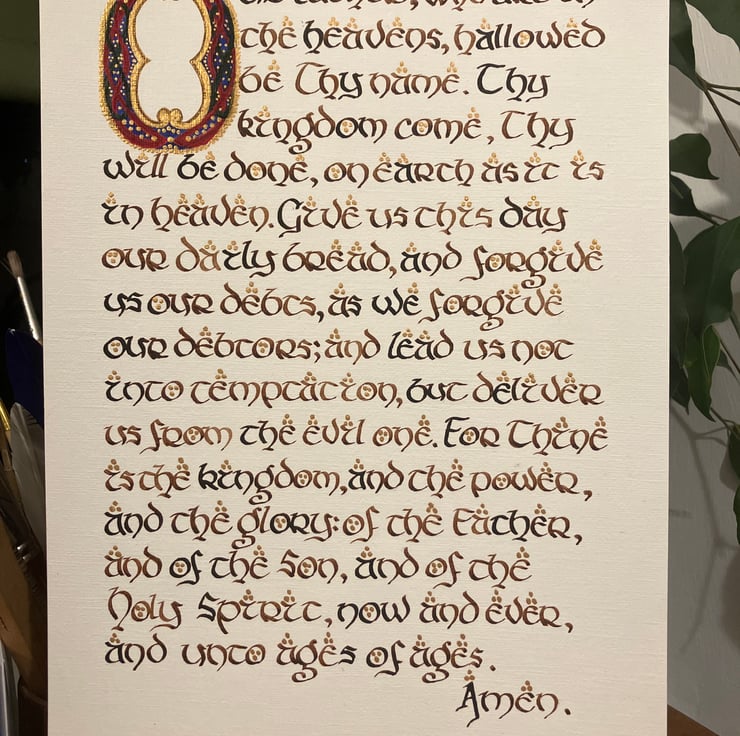 Our Father, Who art in
the heavens, hallowed
be Thy name. Thy
kingdom come, Thy
will be done, on earth as it is
in heaven. Give us this day
our daily bread, and forgive
us our debts, as we forgive
our debtors; and lead us not
into temptation, but deliver
us from the evil one. For Thine
is the kingdom, and the power,
and the glory: of the Father,
and of the Son, and of the
Holy Spirit, now and ever,
and unto ages of ages.
Amen.